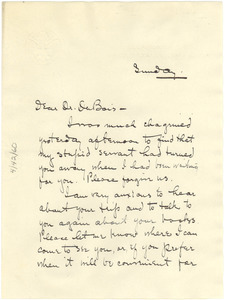 Sunday
Dear Dr. DuBois -
I was much chagrined
yesterday afternoon to find that
my stupid servant had turned
you away when I had been waiting
for you. Please forgive us.
I am very anxious to hear
about your trip and to talk to
you again about your books
Please let me know where I can
come to see you, or if you prefer
when it will be convenient for